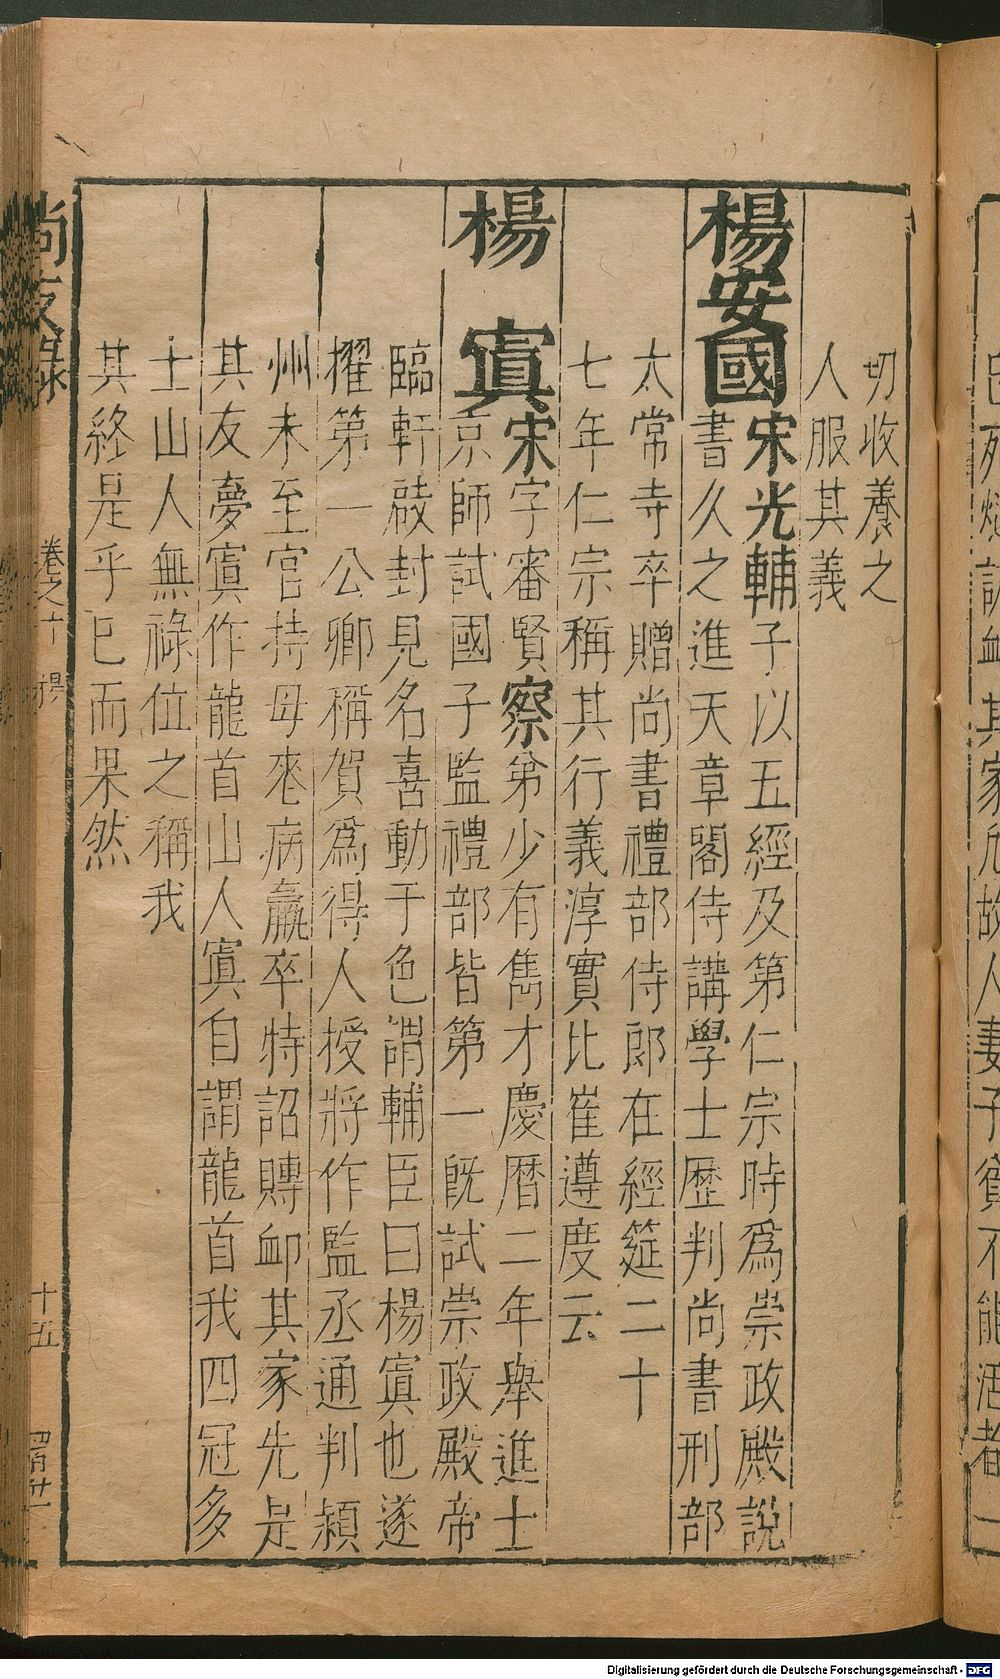 其家
故人妻子貧不能活者一
切收養之
人服其義
楊安國宋光輔子以五經及第仁宗時爲崇政殿說
書久之進天章閣侍講學士歷判尚書刑部
太常寺卒贈尚書禮部侍郎在經筵二十
七年仁宗稱其行義淳實比崔遵度云
楊寘宋字審賢察弟少有雋才慶曆二年舉進士
京師試國子監禮部皆第一既試崇政殿帝
臨軒啟封見名喜動于色謂輔臣曰楊寘也遂
擢第一公卿稱賀爲得人授將作監丞通判潁
州未至官持母喪病羸卒特詔賻卹其家先是
其友夢寘作龍首山人寘自謂龍首我四冠多
士山人無祿位之稱我
其終是乎已而果然
尚友錄
卷之十 楊
十五
Digitalisierung gefördert durch die Deutsche Forschungsgemeinschaft - DFG